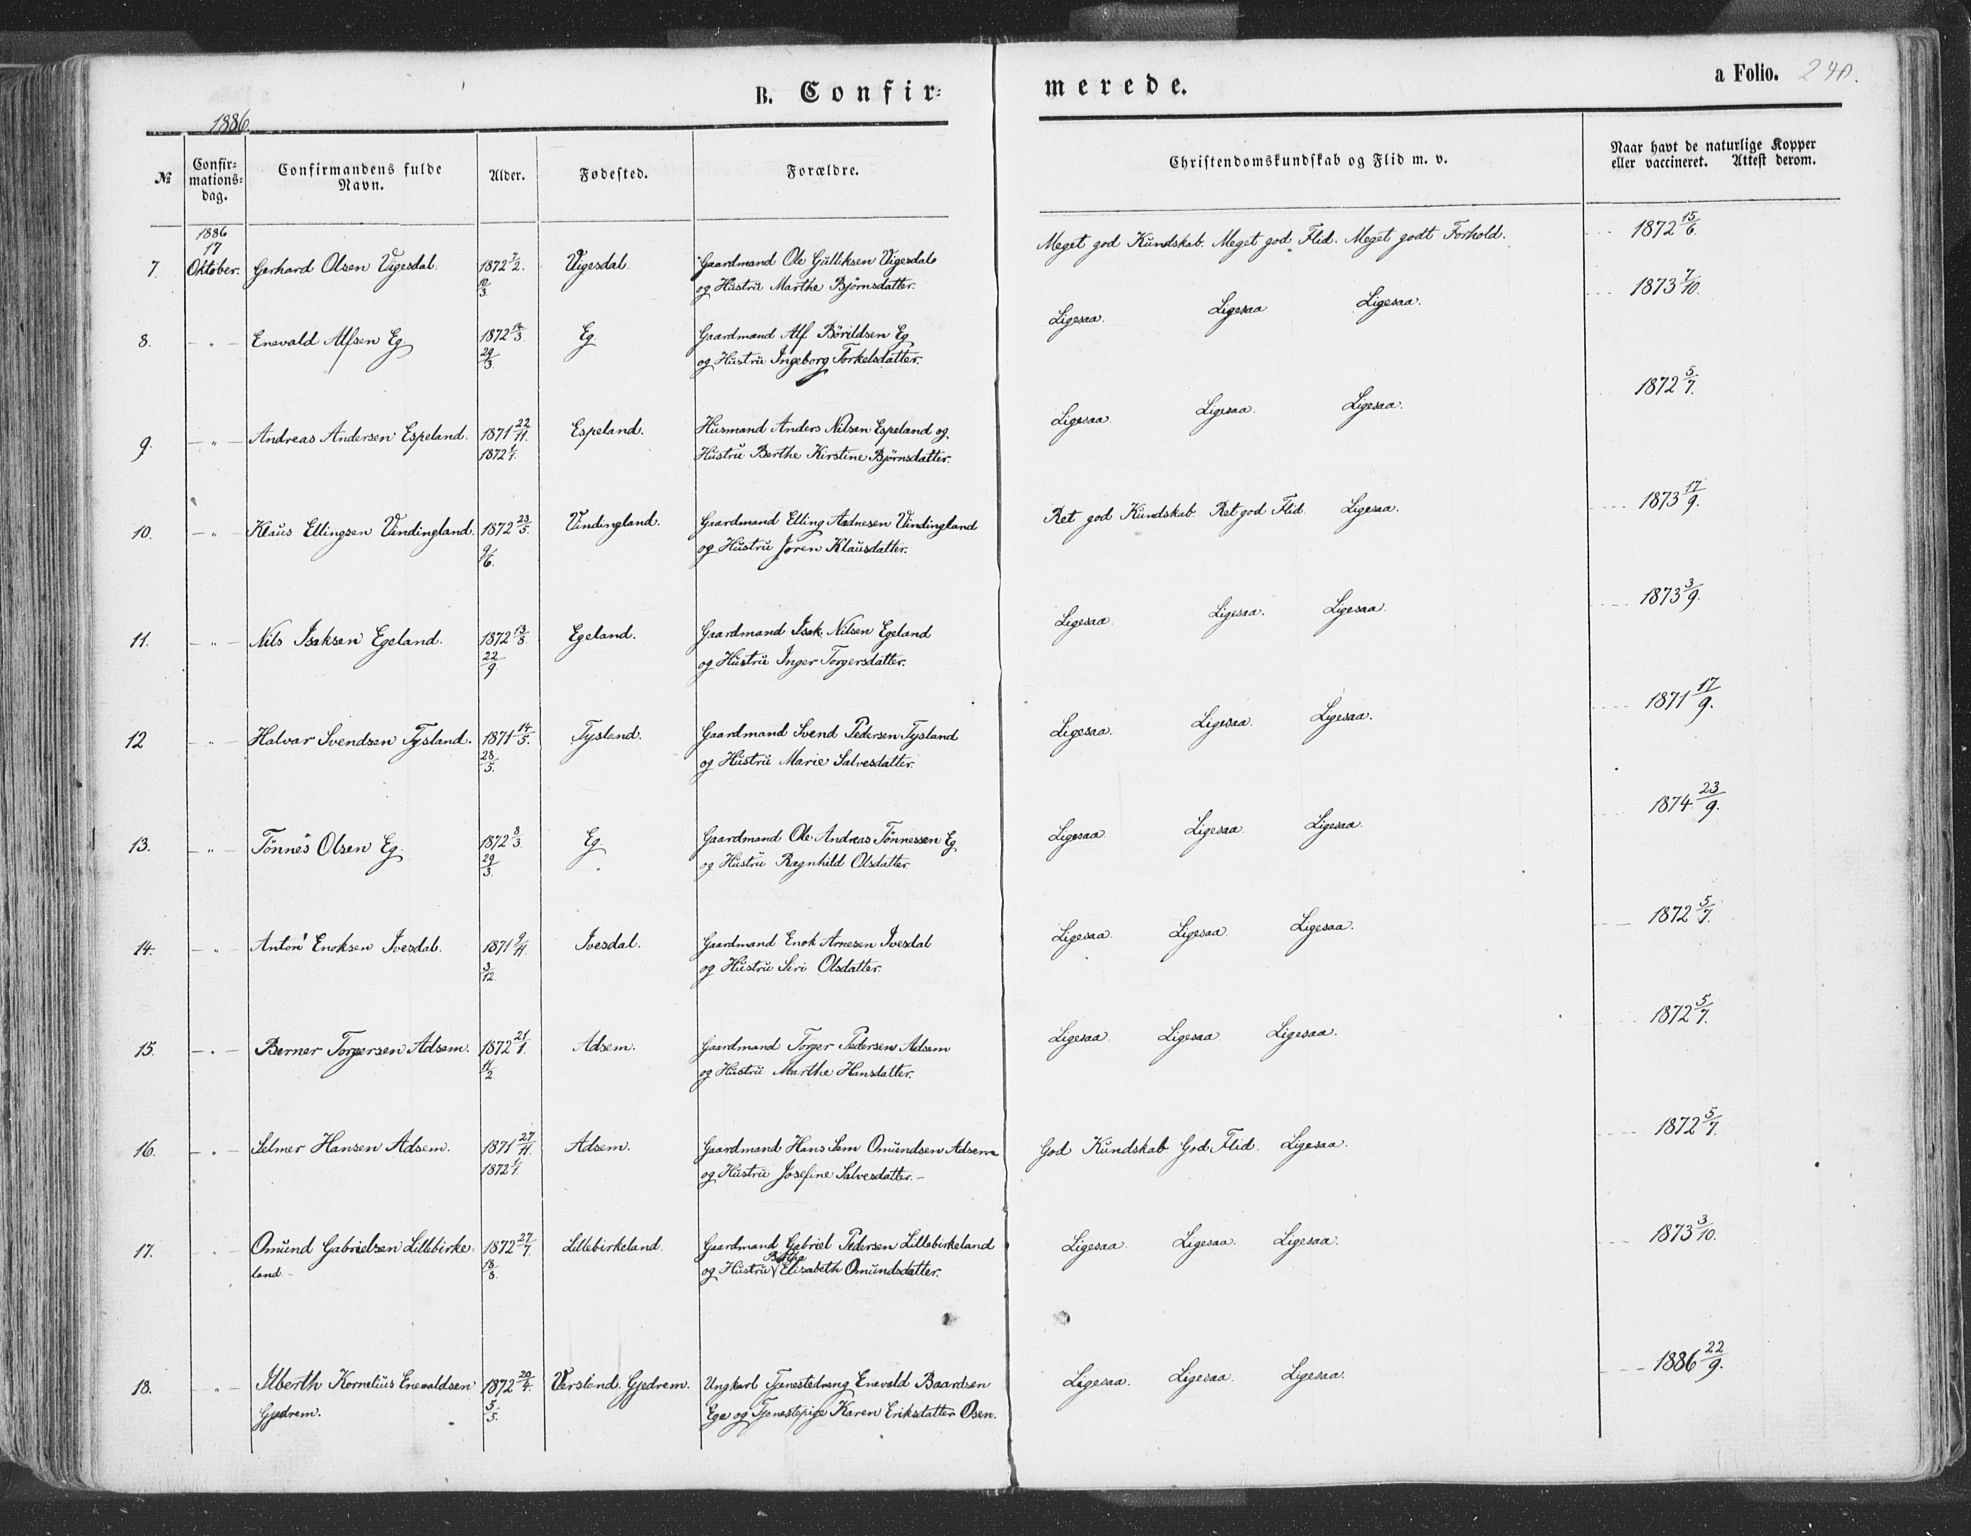 B. Confir-
merede.
a Folio. 240.
1886
№
Confir-
mations-
dag.
Confirmandens fulde
Navn.
Alder.
Fødested.
Forældre.
Christendomskundskab og Flid m. v.
Naar havt de naturlige Kopper
eller vaccineret. Attest derom.
1886
17
7. Oktober. Gerhard Olsen Vigesdal. 1872 7/2. Vigesdal. Gaardmand Ole Gulliksen Vigesdal Meget god Kundskab. Meget god Flid. Meget godt Forhold. 1872 15/6.
10/3. og Hustru Marthe Bjørnsdatter.
8. - " - Enevald Alfsen Eg 1872 14/3. Eg. Gaardmand Alf Börildsen Eg Ligesaa. Ligesaa Ligesaa. 1873 7/10.
29/3. og Hustru Ingeborg Torkelsdatter.
9. - " - Andreas Andersen Espeland. 1871 22/11. Espeland. Husmand Anders Nilsen Espeland og Ligesaa. Ligesaa. Ligesaa. 1872 5/7.
1872 1/1. Hustru Berthe Kirstine Bjørnsdatter.
10. - " - Klaus Ellingsen Vindingland. 1872 23/5. Vindingland. Gaardmand Elling Aadnesen Vindingland Ret god Kundskab. Ret god Flid. Ligesaa. 1873 17/9.
9/6. og Hustru Jøren Klausdatter.
11. - " - Nils Isaksen Egeland. 1872 13/8. Egeland. Gaardmand Isak Nilsen Egeland Ligesaa. Ligesaa. Ligesaa. 1873 3/9.
22/9 og Hustru Inger Torgersdatter.
12 - " - Halvar Svendsen Tysland. 1871 14/5. Tysland. Gaardmand Svend Pedersen Tysland Ligesaa. Ligesaa. Ligesaa. 1871 17/9.
28/5. og Hustru Marie Salvesdatter.
13. - " - Tönnes Olsen Eg. 1872 8/3. Eg. Gaardmand Ole Andreas Tönnessen Eg Ligesaa. Ligesaa. Ligesaa. 1874 23/9.
29/3. og Hustru Ragnhild Olsdatter.
14. - " - Anton Enoksen Ivesdal. 1871 9/11. Ivesdal. Gaardmand Enok Arnesen Ivesdal Ligesaa. Ligesaa. Ligesaa. 1872 5/7.
3/12. og Hustru Siri Olsdatter.
15. - " - Berner Torgersen Adsem. 1872 21/1. Adsem. Gaardmand Torger Pedersen Adsem Ligesaa. Ligesaa Ligesaa. 1872 5/7.
11/2. og Hustru Marthe Hansdatter.
16. - " - Selmer Hansen Adsem. 1871 27/11. Adsem. Gaardmand Hans Sem Omundsen Adsem God Kundskab God Flid. Ligesaa. 1872 5/7.
1872 1/1. og Hustru Josefine Salvesdatter. -
17. " - Omund Gabrielsen Lillebirke- 1872 27/7. Lillebirkeland. Gaardmand Gabriel Pedersen Lillebirkeland Ligesaa. Ligesaa. Ligesaa. 1873 3/10.
land - 18/8. og Hustru Elisabeth Omundsdatter.
18. - " - Ilberth Kornelius Enevaldsen 1872 20/4. Versland. Gjedrem. Ungkarl Tjenestedreng Enevald Baardsen Ligesaa. Ligesaa. Ligesaa. 1886 22/9.
Gjedrem. 5/5. Ege og Tjenestepige Karen Eriksdatter Osen.